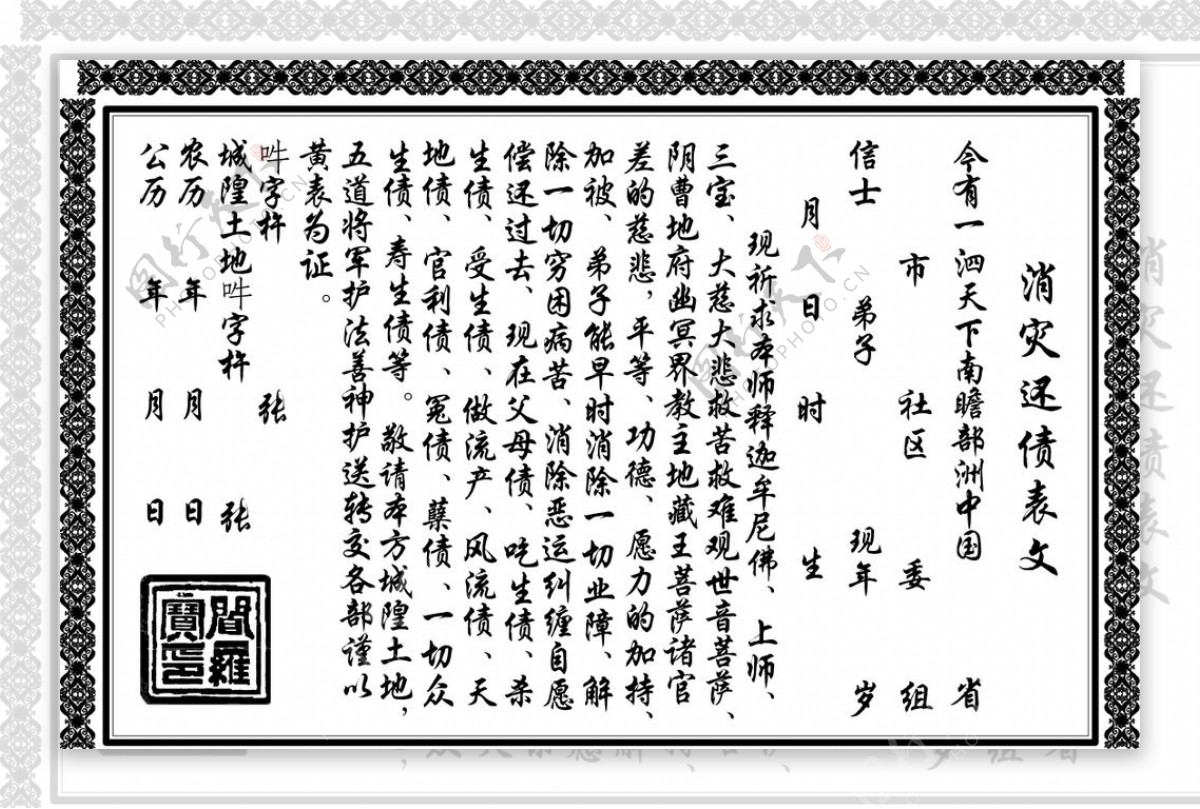 消灾还债表文
今有一泗天下南瞻部洲中国 省
市 社区 委 组
信士 弟子 现年 岁
月 日 时 生
现祈求本师释迦牟尼佛、上师、
三宝、大慈大悲救苦救难观世音菩萨、
阴曹地府幽冥界教主地藏王菩萨诸官
差的慈悲,平等、功德、愿力的加持、
加被、弟子能早时消除一切业障、解
除一切穷困病苦、消除恶运纠缠自愿
偿还过去、现在父母债、吃生债、杀
生债、受生债、做流产、风流债、天
地债、官利债、冤债、蘖债、一切众
生债、寿生债等。敬请本方城隍土地,
五道将军护法善神护送转交各部谨以
黄表为证。
吽字杵 张
城隍土地吽字杵 张
农历 年 月 日
公历 年 月 日
閻羅寶印
图行天下 PHOTO.CN
图行天下 PHOTO.CN